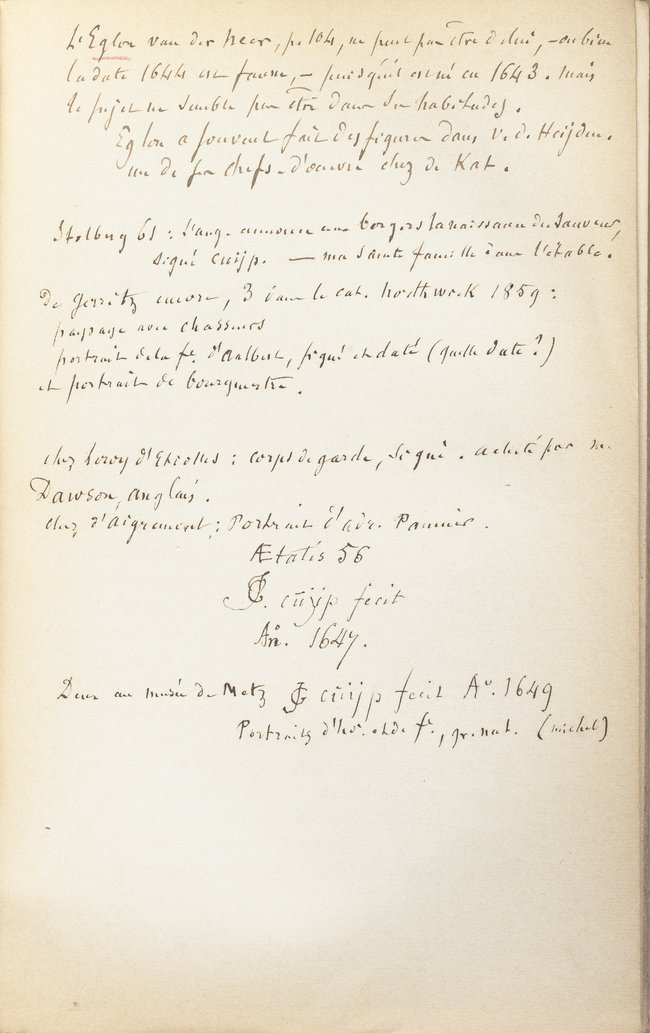 L'Eglon van der Neer, p. 104, ne peut pas être de lui, – ou bien
la date 1644 est fausse, – puisqu'il est né en 1643. mais
le sujet ne semble pas être dans ses habitudes.
Eglon a souvent fait des figures dans v. d. Heijden.
un de ses chefs-d'oeuvre chez de Kat.
Stolberg 61 : L'ange annonce aux bergers la naissance du Sauveur,
signé cuijp. — ma Sainte famille dans l'étable.
De Gerritz encore, 3 dans le cat. Northwick 1859 :
paysage avec chasseurs
portrait de la fe. d'Aalbert, signé et daté (quelle date ?)
et portrait de bourgmestre.
chez Leroy d'Etiolles : corps de garde, signé. acheté par m.
Dawson, anglais.
chez d'Aigremont : Portrait d'adr.
Ætatis 56
JG. cüijp fecit
An. 1647.
Deux au musée de Metz JG cüijp fecit Ao. 1649
Portraits d'ho. et de fe., gr. nat. (michel)